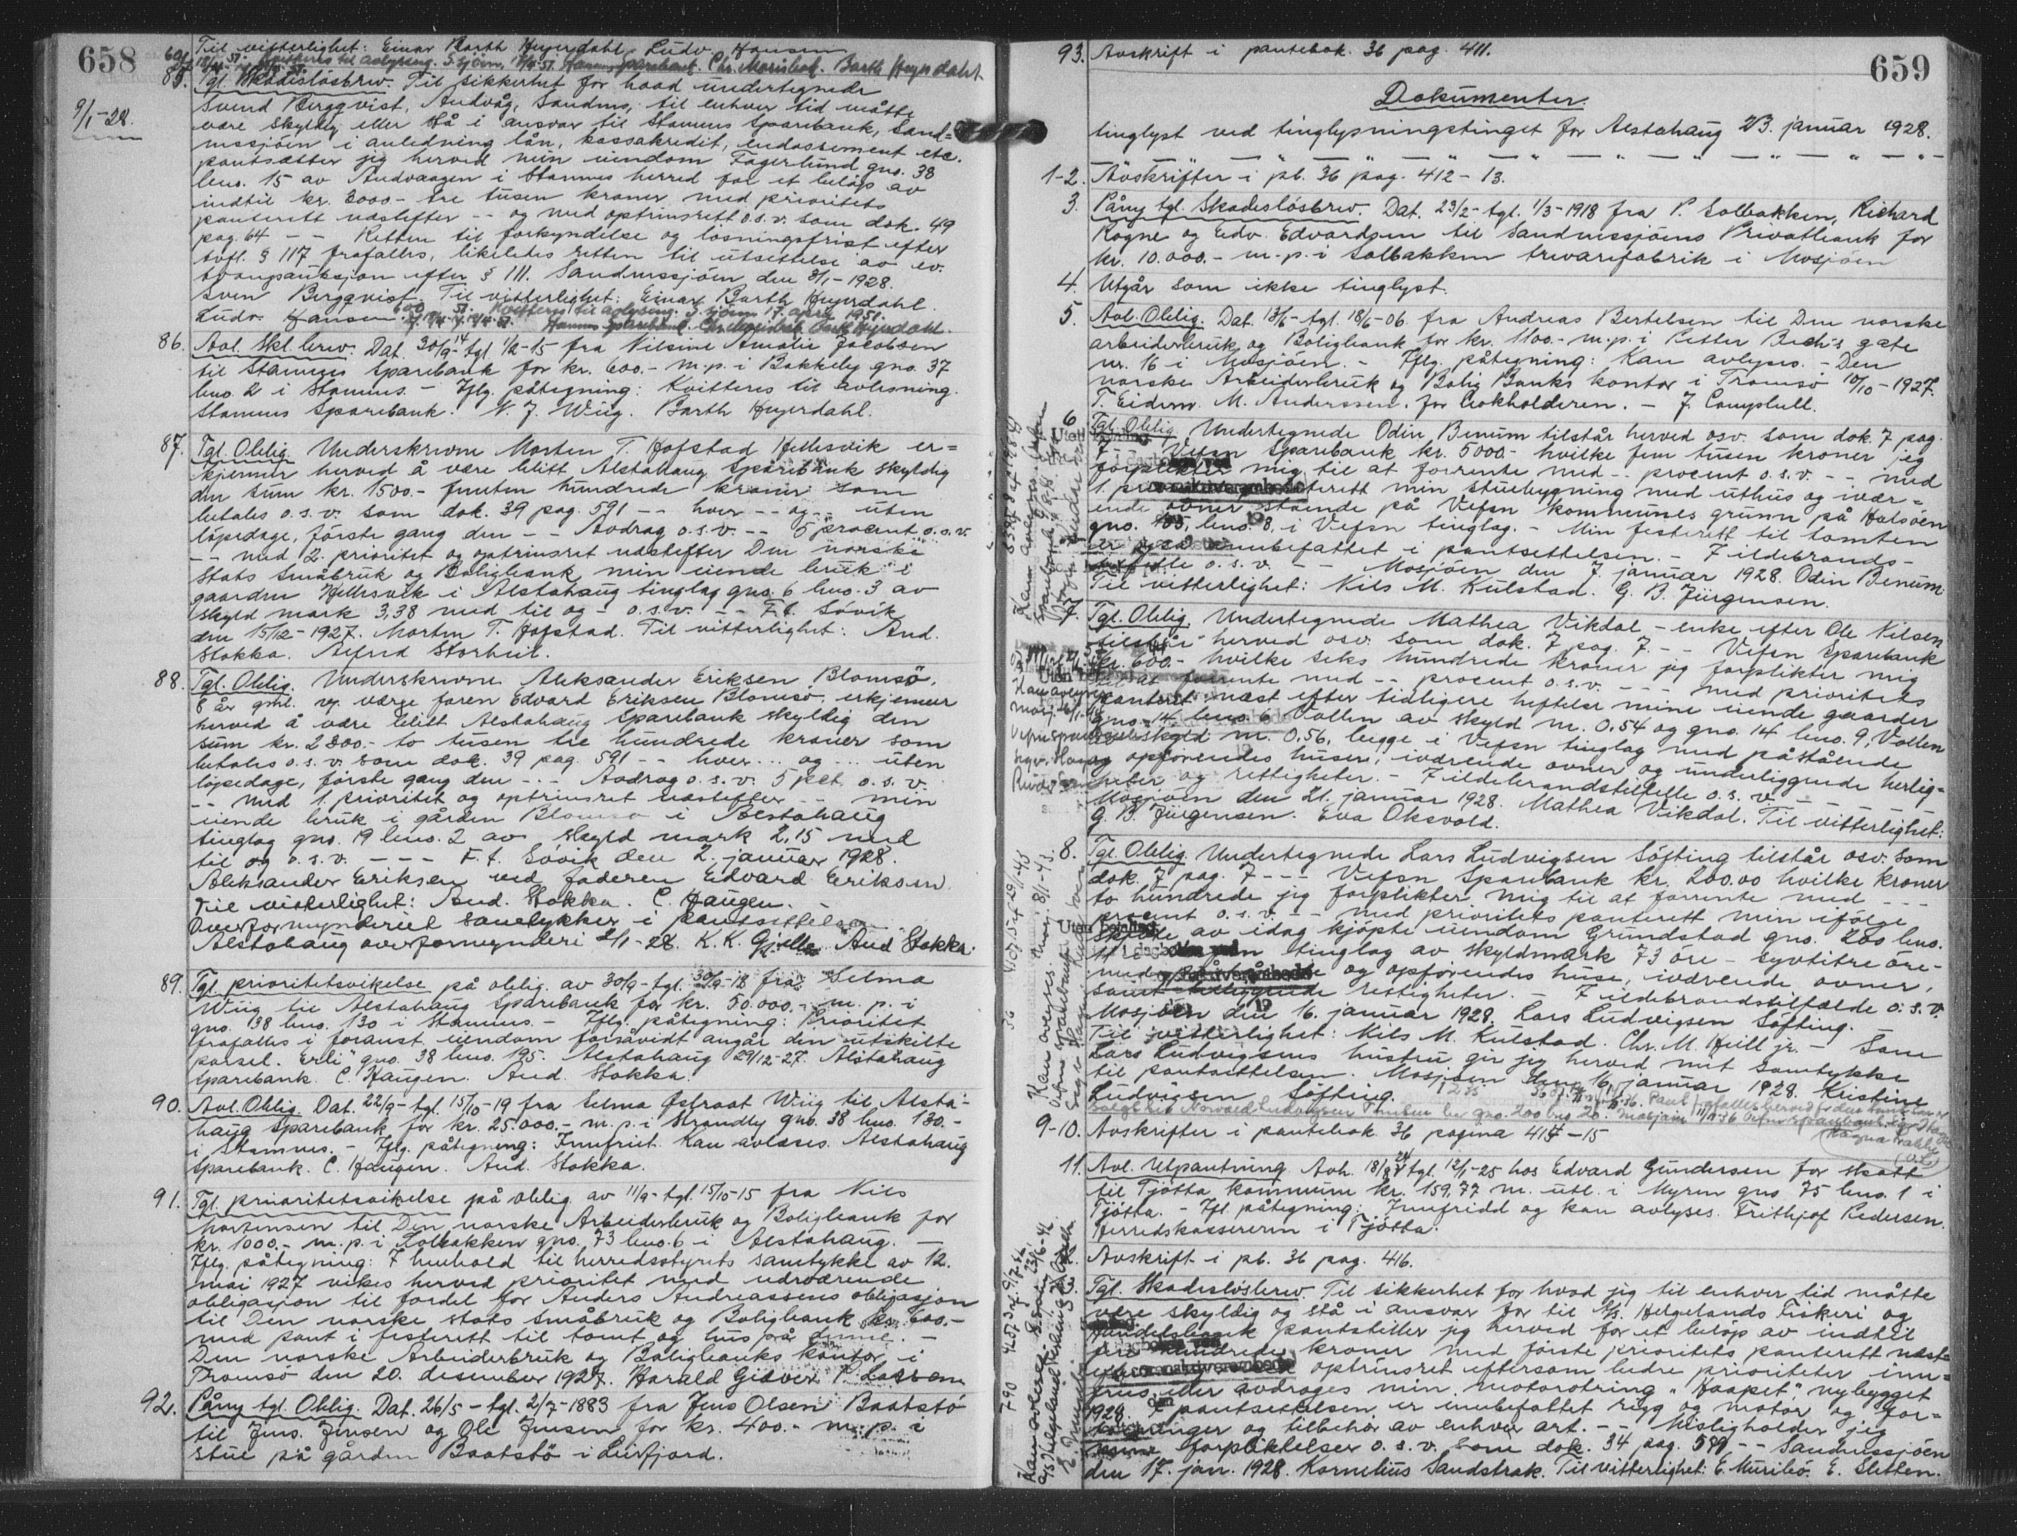 658
Til vitterlighet: Einar Barth Heyerdahl. Ludv. Hansen
9/1-28.
85. Tgl. Skadesløsbrev. Til sikkerhet for hvad undertegnede
Svend Bergqvist, Andvåg, Sandnes, til enhver tid måtte
være skyldig eller stå i ansvar til Stamnes Sparebank, Sand-
nessjöen i anledning lån, kassakredit, endossement etc.
pantsætter jeg herved min eiendom Fagerlund gno. 38
bno. 15 av Andvaagen i Stamnes herred for et beløp av
indtil kr. 3000.- tre tusen kroner med prioritets
panterett næstefter -- og med optrinsrett o.s.v. som dok. 49
pag. 64 -- Retten til forkyndelse og løsningsfrist efter
tvfl. § 117 frafalles, likeledes retten til utsettelse av ev.
tvangsauksjon efter § 111. Sandnessjöen den 9/1-1928.
Sven Bergqvist. Til vitterlighet: Einar Barth Heyerdahl.
Ludv. Hansen. Kvitteres til avlysning. S.sjöen 17. april 1951.
Stamnes Sparebank. Barth Heyerdahl.
86. Avl. Skl. brev. Dat. 30/9-14 tgl. 1/2-15 fra Nilsine Amalie Jacobsen
til Stamnes Sparebank for kr. 600.- m.p. i Bakkely gno. 37
bno. 2 i Stamnes. - Iflg. påtegning: Kvitteres til avlesning.
Stamnes Sparebank. N. J. Wiig. Barth Heyerdahl.
87. Tgl. Oblig. Underskrevne Morten T. Hofstad Hellesvik er-
kjenner herved å være blitt Alstahaug Sparebank skyldig
den sum kr. 1500.- femten hundrede kroner som
betales o.s.v. som dok. 39 pag. 591 -- hver -- og -- uten
løpedage, første gang den -- Avdrag o.s.v. -- 5 procent o.s.v.
-- med 2. prioritet og optrinsret næstefter Den norske
Stats Småbruk og Boligbank min eiende bruk i
gaarden Hellesvik i Alstahaug tinglag gno. 6 bno. 3 av
skyld mark 3,38 med til og - o.s.v. -- F.t. Søvik
den 15/12-1927. Morten T. Hofstad. Til vitterlighet: And.
Stokka. Alfred Storheil.
88. Tgl. Oblig. Underskrevne Aleksander Eriksen Blomsø,
8 år gml. vg. værge faren Edvard Eriksen Blomsø, erkjenner
herved å være blitt Alstahaug Sparebank skyldig den
sum kr. 2300.- to tusen tre hundrede kroner som
betales o.s.v. som dok. 39 pag. 591 -- hver ... og ... uten
løpedage, første gang den -.- Avdrag o.s.v. 5 pct. o.s.v.
-- med 1. prioritet og optrinsret næstefter -- min
eiende bruk i gården Blomsø i Alstahaug
tinglag gno. 19 bno. 2 av skyld mark 2,15 med
til og o.s.v. --- F.t. Søvik den 2. januar 1928.
Aleksander Eriksen ved faderen Edvard Eriksen.
Til vitterlighet: And. Stokka. C. Haugen.
Overformynderiet samtykker i pantsettelsen.
Alstahaug overformynderi 2/1-28. K. K. And. Stokka.
89. Tgl. prioritetsvikelse på oblig. av 30/9- tgl. 30/9-18 fra Selma
Wiig til Alstahaug Sparebank for kr. 50.000.- m.p. i
gno. 138 bno. 130 i Stamnes. - Iflg. påtegning: Prioritet
frafalles i foranst. eiendom forsåvidt angår den utskilte
parsel. "Erli" gno. 38 bno. 195. Alstahaug 29/12-27. Alstahaug
Sparebank. C. Haugen. And. Stokka.
90. Avl. Oblig. Dat. 22/9- tgl. 15/10-19 fra Selma Wiig til Alsta-
haug Sparebank for kr. 25.000.- m.p. i Strandby gno. 38 bno. 130.-
i Stamnes. - Iflg. påtegning: Innfriet. Kan avlæses. Alstahaug
Sparebank. C. Haugen. And. Stokka.
91. Tgl. prioritetsvikelse på oblig. av 11/9- tgl. 15/10-15 fra Nils
Mortensen til Den norske Arbeiderbruk og Boligbank for
kr. 1000.- m.p. i gno. 73 bno. 6 i Alstahaug. -
Iflg. påtegning: I henhold til herredsstyrets samtykke av 12.
mai 1927 vikes herved prioritet med nærværende
obligasjon til fordel for Anders Andreassens obligasjon
til Den norske stats småbruk og Boligbank kr. 600.-
med pant i festerett til tomt og hus på denne. -
Den norske Arbeiderbruk og Boligbanks kontor i
Tromsø den 20. desember 1927. Harald Giæver.
92. Påny tgl. Oblig. Dat. 26/5- tgl. 2/7-1883 fra Jens Olsen Baatstø
til Jens Jensen og Ole Jensen for kr. 400.- m.p. i
stue på gården Baatstø i Leirfjord.
659
93. Avskrift i pantebok. 36 pag. 411.
Dokumenter
tinglyst ved tinglysningstinget for Alstahaug 23. januar 1928.
1-2. Avskrifter i pb. 36 pag. 412-13.
3. Påny tgl. Skadesløsbrev. Dat. 23/2- tgl. 1/3-1918 fra P. Solbakken, Richard
Rogne og Edv. Edvardsen til Sandnessjöens Privatbank for
kr. 10.000.- m.p. i Solbakken trevarefabrik i Mosjöen
4. Utgår som ikke tinglyst.
5. Avl. Oblig. Dat. 13/6- tgl. 18/6-06 fra Andreas Bertelsen til Den norske
arbeiderbruk og Boligbank for kr. 1100.- m.p. i Petter Bech's gate
nr. 16 i Mosjöen. - Iflg. påtegning: Kan avlyses. - Den
norske Arbeiderbruk og Bolig Banks kontor i Tromsø 10/10-1927.
T. Eidem. M. Anderssen. for bokholderen. - J. Campbell.
6. Tgl. Oblig. Undertegnede Odin Benum tilstår herved osv. som dok. 7 pag.
7 -- Vefsn Sparebank kr. 5000.- hvilke fem tusen kroner jeg
forplikter mig til at forrente med - procent o.s.v. -- med
1. prioritets panterett min stuebygning med uthus og ivær-
ende ovner stående på Vefsn kommunes grunn på Halsöen
gno. 103, bno. 8, i Vefsn tinglag. - Min festerett til tomten
er også innbefattet i pantsettelsen. - I ildebrands-
tilfelle o.s.v. -- Mosjöen den 7. januar 1928. Odin Benum.
Til vitterlighet: Nils M. Kulstad. G. B. Jürgensen.
7. Tgl. Oblig. Undertegnede Mathea Vikdal - enke efter Ole Nilsen
tilstår herved osv. som dok. 7 pag. 7. -- Vefsn Sparebank
kr. 600.- hvilke seks hundrede kroner jeg forplikter mig
til at forrente med -- procent o.s.v. --- med prioritets
panteret næst efter tidligere heftelser mine eiende gaarder
gno. 14 bno. 6 Vollen av skyld m. 0,54 og gno. 14 bno. 9, Vollen
av skyld m. 0,56, begge i Vefsn tinglag med påstående
og opførendes huser, iværende ovner og underliggende herlig-
heter og rettigheter. - I ildebrandstilfelle o.s.v. --
Mosjöen den 21. januar 1928. Mathea Vikdal. Til vitterlighet:
G. B. Jürgensen. Eva Oksvold.
8. Tgl. Oblig. Undertegnede Lars Ludvigsen Söfting tilstår osv. som
dok. 7 pag. 7 --- Vefsn Sparebank kr. 200.00 hvilke kroner
to hundrede jeg forplikter mig til at forrente med ---
procent o.s.v. -- med prioritets panterett min ifølge
skjøte av idag kjøpte eiendom Grundstad gno. 200 bno.
11 i Vefsn tinglag av skyldmark 73 öre - syvtitre öre -
med påstående og opførendes huse, iværende ovner,
samt tilliggende rettigheter. - I ildebrandstilfælde o.s.v.
Mosjöen den 16. januar 1928. Lars Ludvigsen Söfting.
Til vitterlighet: Nils M. Kulstad. Chr. M. Heill jr. - Som
Lars Ludvigsens hustru gir jeg herved mit samtykke
til pantsettelsen. Mosjöen den 16. januar 1928. Kristine
Ludvigsen Söfting.
9-10. Avskrifter i pantebok. 36 pagina 414-15
11. Avl. Utpantning. Avh. 18/8-24 tgl. 12/1-25 hos Edvard Gundersen for skatt
til Tjøtta kommune kr. 159,77 m. utl. i Myren gno. 75 bno. 1 i
Tjøtta. - Ifl. påtegning: Innfridd og kan avlyses. Frithjof Pedersen.
Herredskassereren i Tjøtta.
Avskrift i pb. 36 pag. 416.
Tgl. Skadesløsbrev. Til sikkerhet for hvad jeg til enhver tid måtte
være skyldig og stå i ansvar for til A/S Helgelands Fiskeri og
Handelsbank pantstiller jeg herved for et beløp av indtil
hundrede kroner med første prioritets panterett næst
optrinsret eftersom bedre prioriteter inn-
fries eller avdrages min motorotring "Haapet" nybygget
1928. I pantsettelsen er innbefattet rigg og motor og for-
tøininger og tilbehör av enhver art. -- Misligholder jeg
mine forpliktelser o.s.v. som dok. 34 pag. 599 -- Sandnessjöen
den 17. jan. 1928. Kornelius Sandstrak. Til vitterlighet: E. Muribø. E. Sletten.